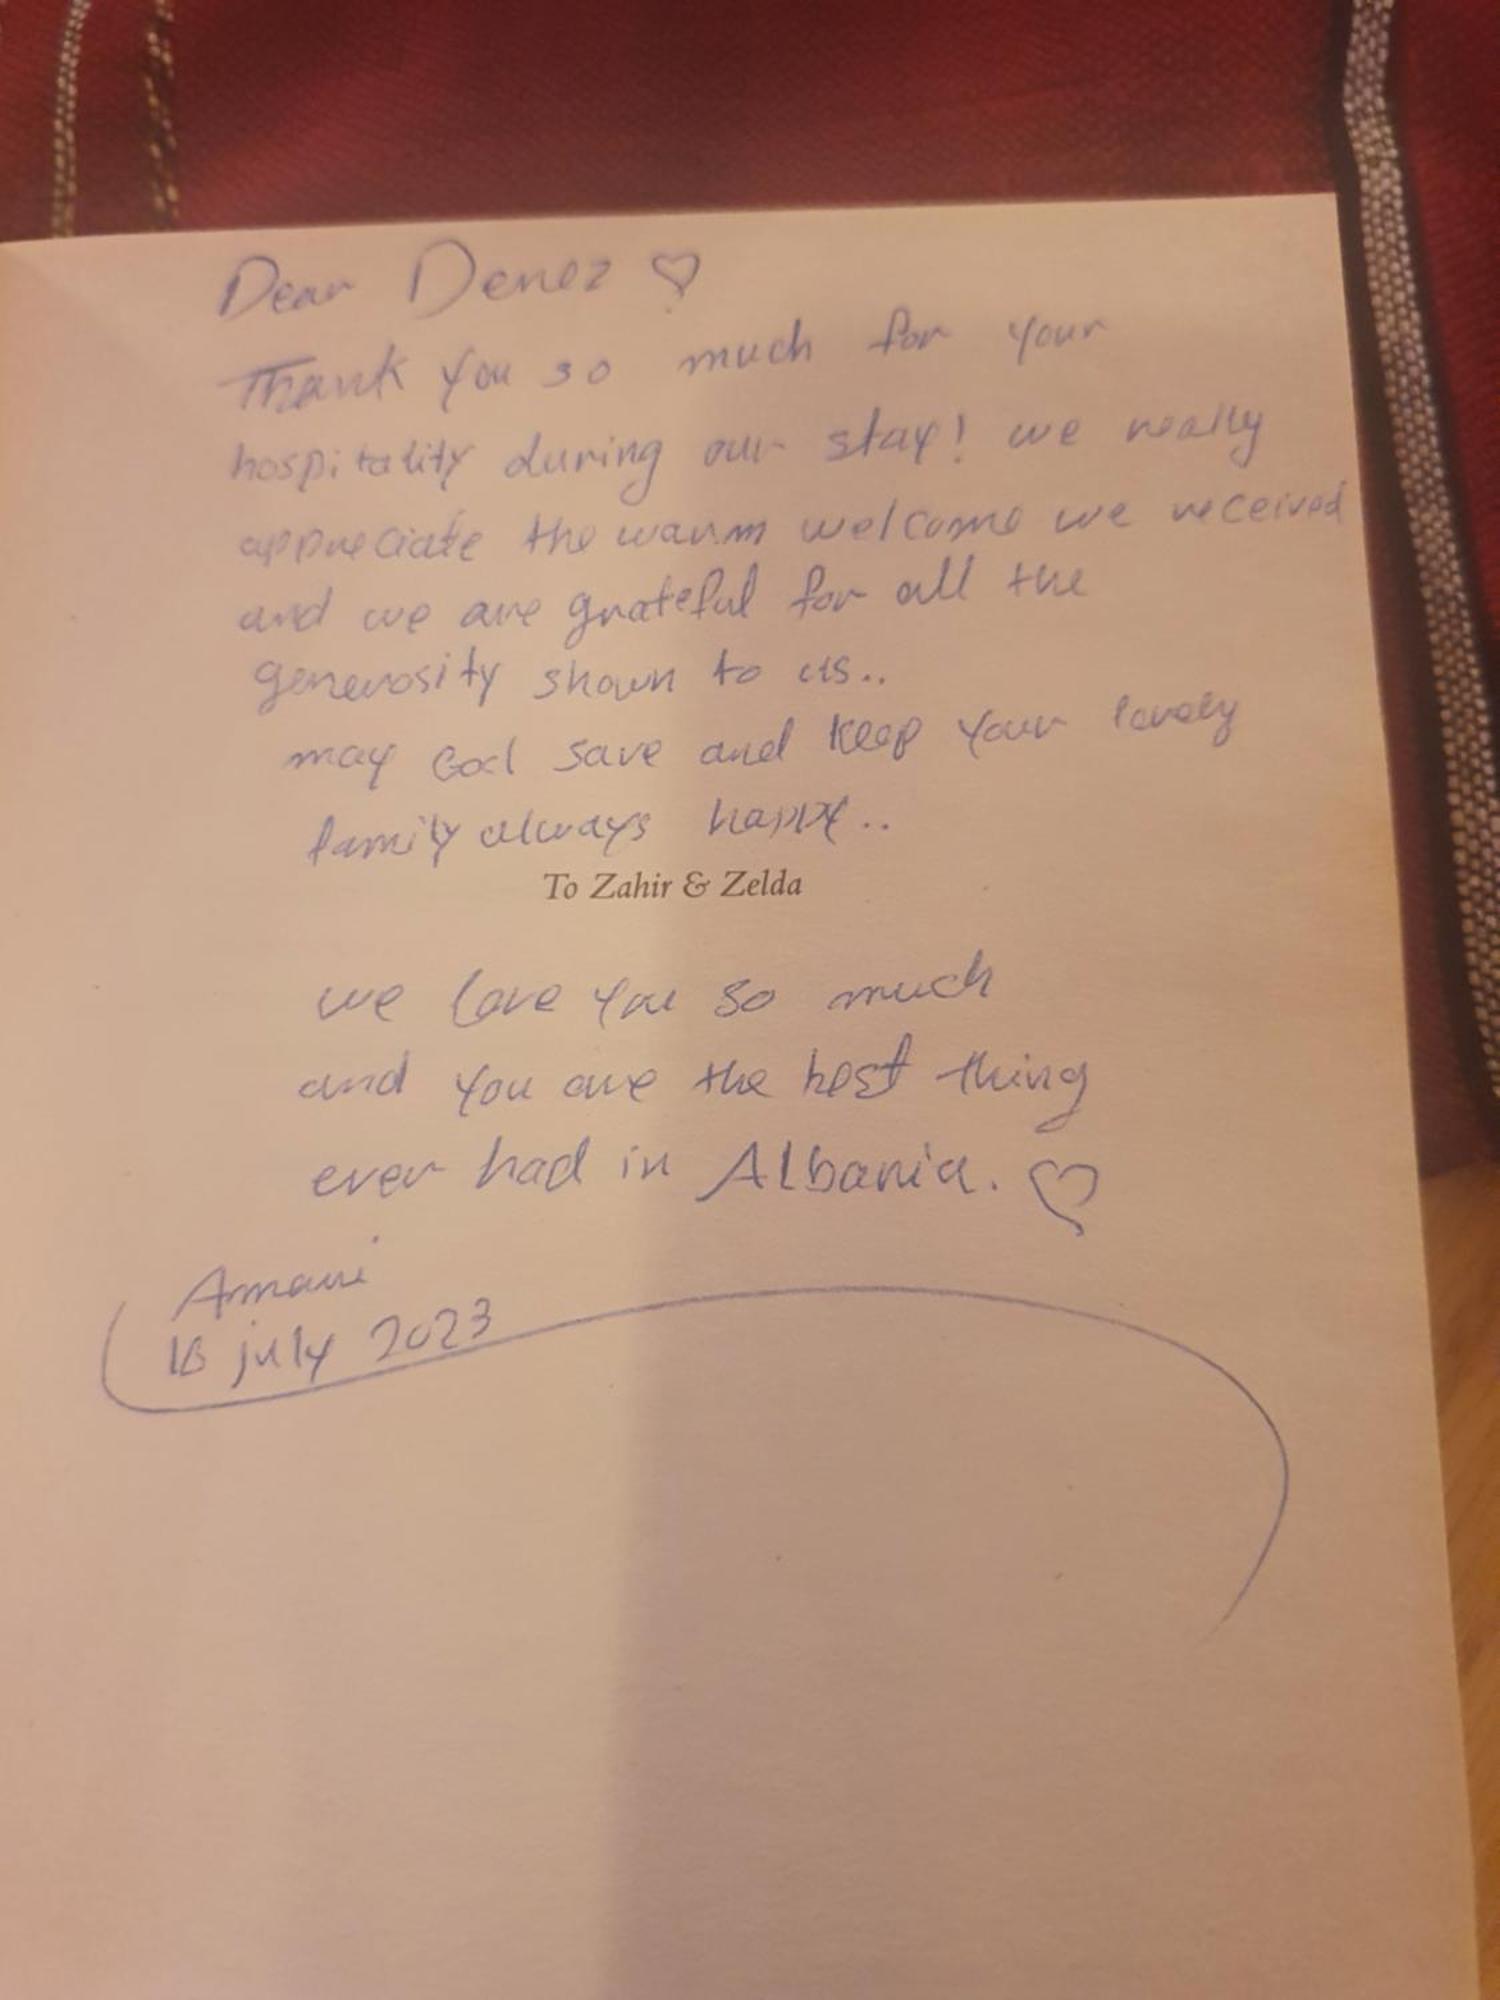 Dear Denez ♡
Thank you so much for your
hospitality during our stay! we really
appreciate the warm welcome we received
and we are grateful for all the
generosity shown to us..
may God save and keep your lovely
family always happy..
To Zahir & Zelda
we love you so much
and you are the best thing
ever had in Albania. ♡
Amani
july 2023